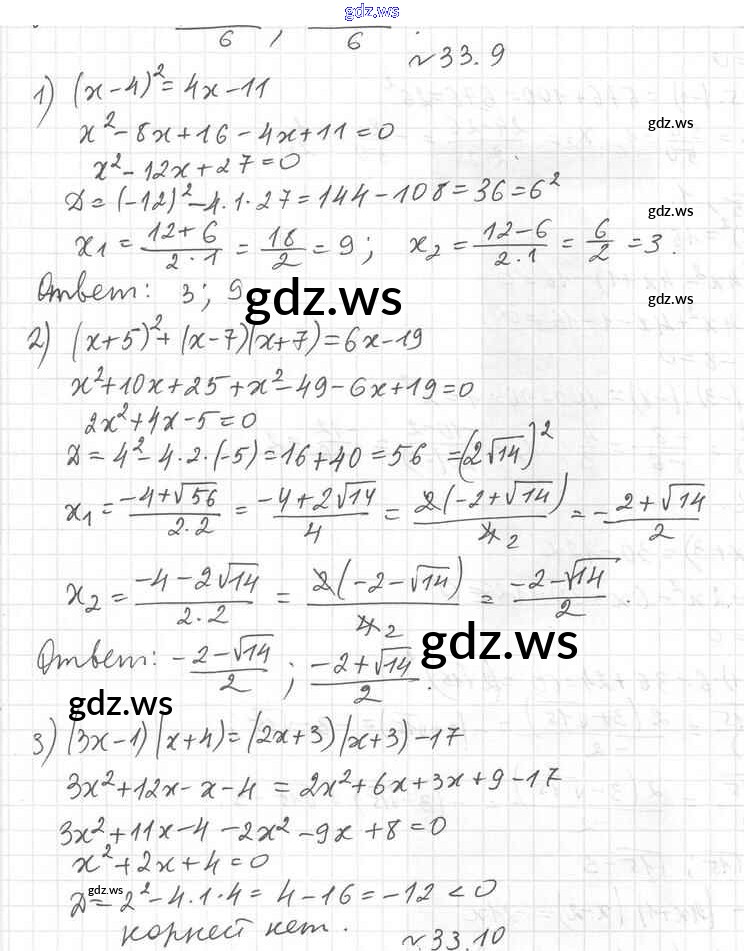 gdz.ws
6 , 6 .
№33.9
1) (x-4)² = 4x-11
gdz.ws
x²-8x+16-4x+11=0
x²-12x+27=0
D=(-12)²-4·1·27=144-108=36=6²
gdz.ws
x₁ = (12+6)/(2·1) = 18/2 = 9; x₂ = (12-6)/(2·1) = 6/2 = 3.
Ответ: 3; 9
gdz.ws
gdz.ws
2) (x+5)²+(x-7)(x+7)=6x-19
x²+10x+25+x²-49-6x+19=0
2x²+4x-5=0
D=4²-4·2·(-5)=16+40=56 =(2√14)²
x₁ = (-4+√56)/(2·2) = (-4+2√14)/4 = 2(-2+√14)/4 2 = -2+√14/2
x₂ = (-4-2√14)/(2·2) = 2(-2-√14)/4 2 = (-2-√14)/2 .
Ответ: -2-√14/2 ; (-2+√14)/2 .
gdz.ws
gdz.ws
3) (3x-1)(x+4)=(2x+3)(x+3)-17
3x²+12x-x-4 = 2x²+6x+3x+9-17
3x²+11x-4-2x²-9x+8=0
x²+2x+4=0
gdz.ws
D=2²-4·1·4=4-16=-12<0
корней нет.
№33.10